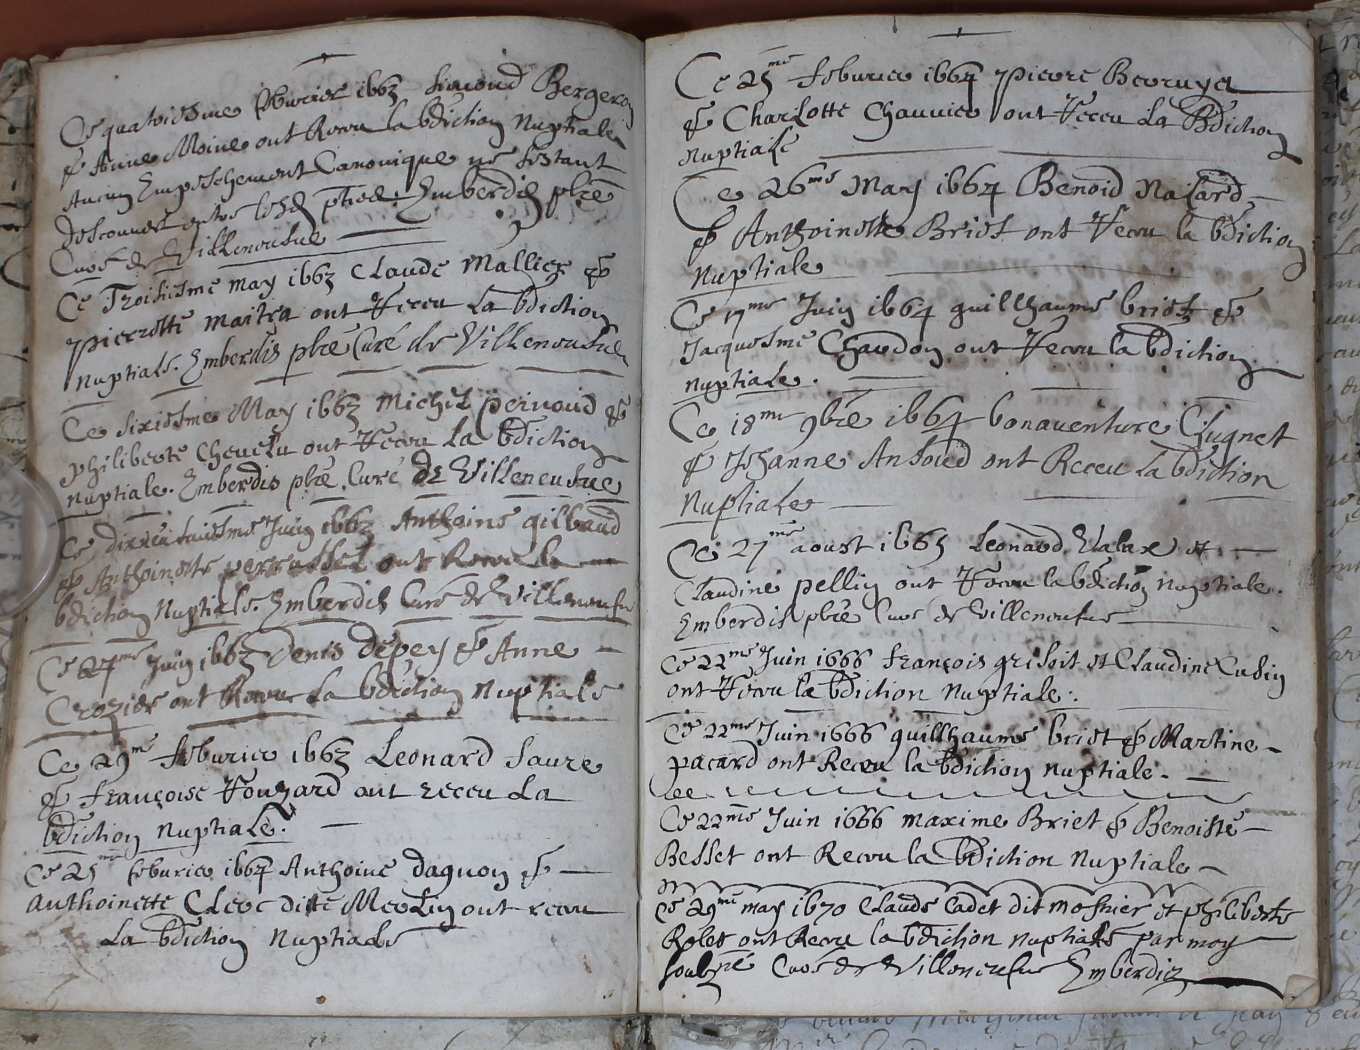 Ce quatoiesme febvrier 1663 Simond Bergeron
& Anne Moine ont Receu la bdiction Nuptiale
Aucun Empeschement Canonique ne sestant
descouvert entre lesd pties. Emberdis pbre
Curé de Villeneufue
Ce Troisiesme may 1663 Claude Mallier &
pierrette maitra ont Receu La bdiction
nuptiale. Emberdis pbre Curé de Villeneufue
Ce sixiesme May 1663 Michel pernoud &
philiberte Chevelu ont Receu La bdiction
nuptiale. Emberdis pbre Curé de Villeneufue
Ce dixhuitaiesme Juin 1663 Anthoine gilbaud
& Anthoinette perrasset ont Receu la
bdiction Nuptiale. Emberdis Curé de Villeneufue
Ce 27me Juin 1663 Denis depey & Anne
Crozier ont Receu La bdiction Nuptiale
Ce 29me febvrier 1663 Leonard faure
& françoise Fougard ont receu La
bdiction nuptiale.
Ce 25me febvrier 1664 Anthoine dagnon &
Anthoinette Clerc ditte Merlin ont receu
La bdiction Nuptiale
Ce 25me febvrier 1664 pierre
& Charlotte Chauvier ont Receu La Bdiction
nuptiale
Ce 26me May 1664 Benoid Nalard
& Anthoinette Briet ont Receu la bdiction
Nuptiale
Ce 17me Juin 1664 guillhaume briet &
Jacquesme Chaudon ont Receu la bdiction
nuptiale.
Ce 18me 9bre 1664 bonaventure Clugnet
& Jehanne Ansoud ont Receu La bdiction
Nuptiale
Ce 27me aoust 1665 Leonard et
Claudine pellin ont Receu la bdiction nuptiale.
Emberdis pbre Curé de Villeneufue
Ce 22me Juin 1666 françois grisoit et Claudine Cudin
ont Receu la bdiction Nuptiale.
Ce 22me Juin 1666 guillhaume briet & Martine
pacard ont Receu la bdiction nuptiale.
Ce 22me Juin 1666 maxime Briet & Benoiste
Besset ont Receu la bdiction Nuptiale
Ce 29me may 1670 Claude Cadet dit mosnier et philiberte
Rolet ont Receu la bdiction nuptiale par moy
soubné Curé de Villeneufue Emberdis